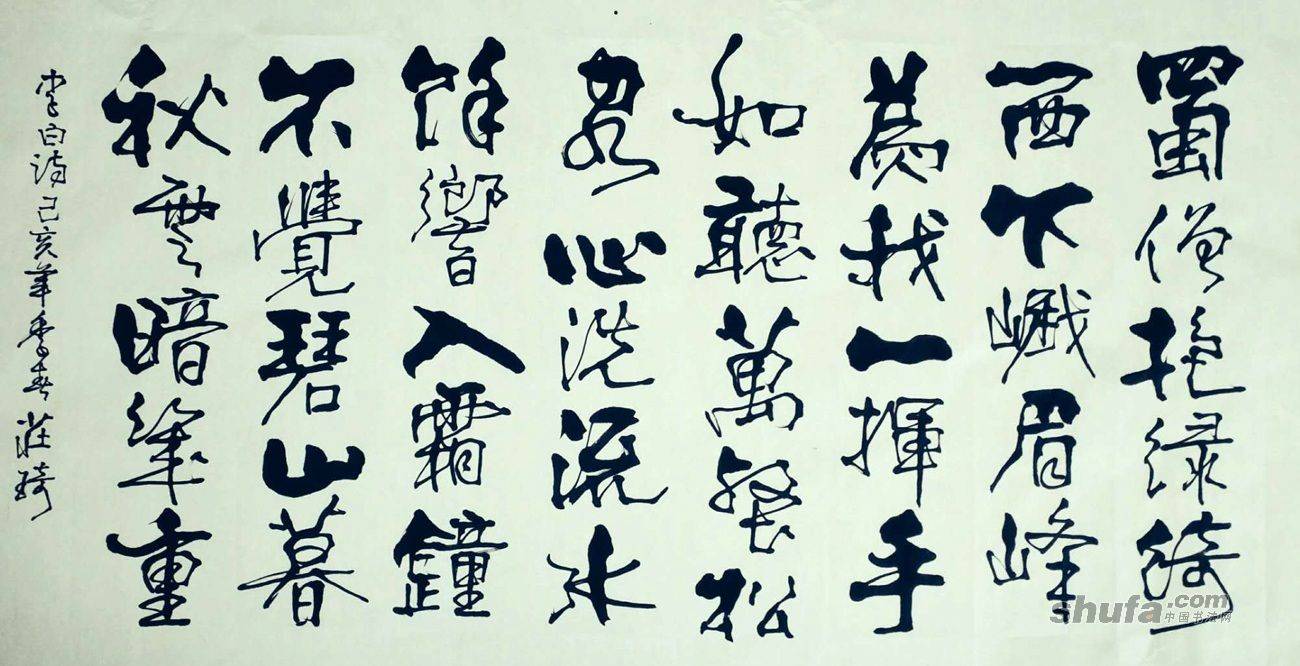 蜀僧抱绿绮
西下峨眉峰
為我一揮手
如聽萬壑松
客心洗流水
餘響入霜鐘
不覺碧山暮
秋雲暗幾重
李白诗己亥年季春莊琦
shufa.com
中国书法网